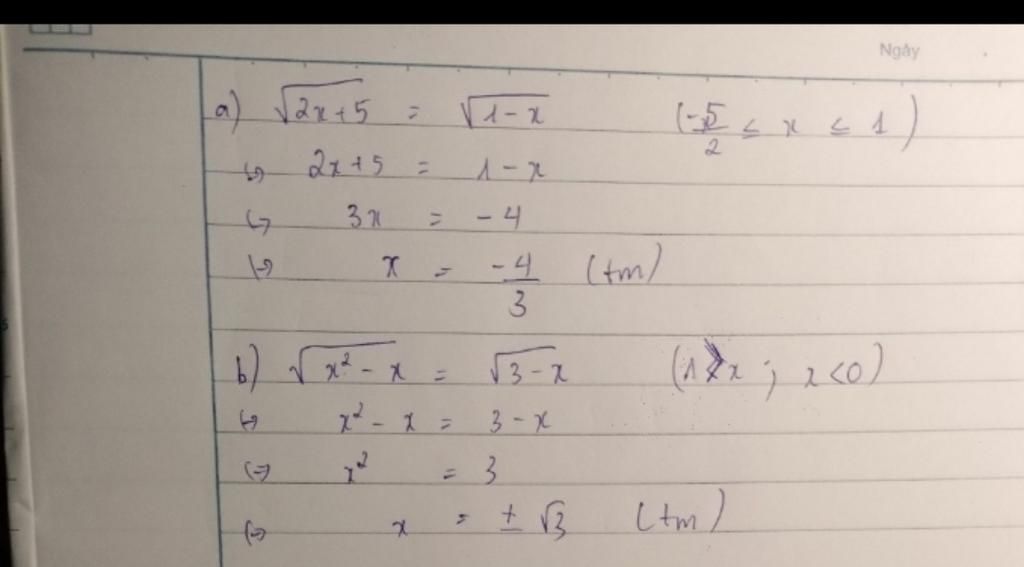 Ngày
a) √(2x+5) = √(1-x) (-5/2 ≤ x ≤ 1)
⇔ 2x+5 = 1-x
⇔ 3x = -4
⇔ x = -4/3 (tm)
b) √(x²-x) = √(3-x) (1 x ; x<0)
⇔ x²-x = 3-x
⇔ x² = 3
⇔ x = ±√3 (tm)